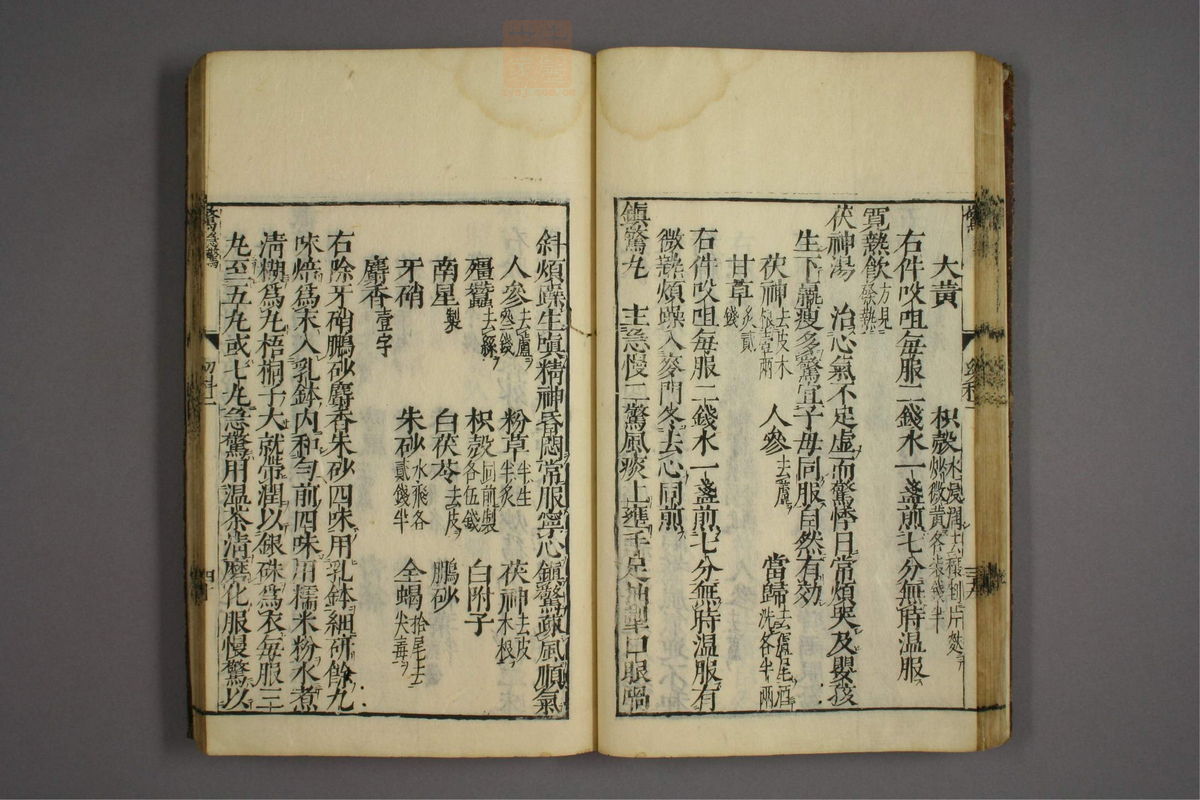 大黃　枳殼水浸潤去穰剉片麩炒微黃各壹錢半
右件㕮咀每服二錢水一盞煎七分無時溫服
寬熱飲方見發熱
茯神湯　治心氣不足虛而驚悸日常煩哭及嬰孩
生下羸瘦多驚宜子母同服自然有効
茯神去皮木根壹兩　人參去蘆　當歸去蘆尾酒洗各半兩
甘草炙貳錢
右件㕮咀每服二錢水一盞煎七分無時溫服有
微熱煩躁入麥門冬去心同煎
鎮驚丸　主急慢二驚風痰上壅手足抽掣口眼喎
斜煩躁生嗔精神昏悶常服寧心鎮驚疎風順氣
人參去蘆叁錢　粉草半生半炙　茯神去皮木根
殭蠶去絲　枳殼同前製各伍錢　白附子
南星製　白茯苓去皮　鵬砂
牙硝　朱砂水飛各貳錢半　全蝎拾尾去尖毒
麝香壹字
右除牙硝鵬砂麝香朱砂四味用乳鉢細研餘九
味焙爲末入乳鉢内和勻前四味用糯米粉水煮
清糊爲丸梧桐子大就帶潤以銀硃爲衣每服三
丸至五丸或七丸急驚用溫茶清磨化服慢驚以